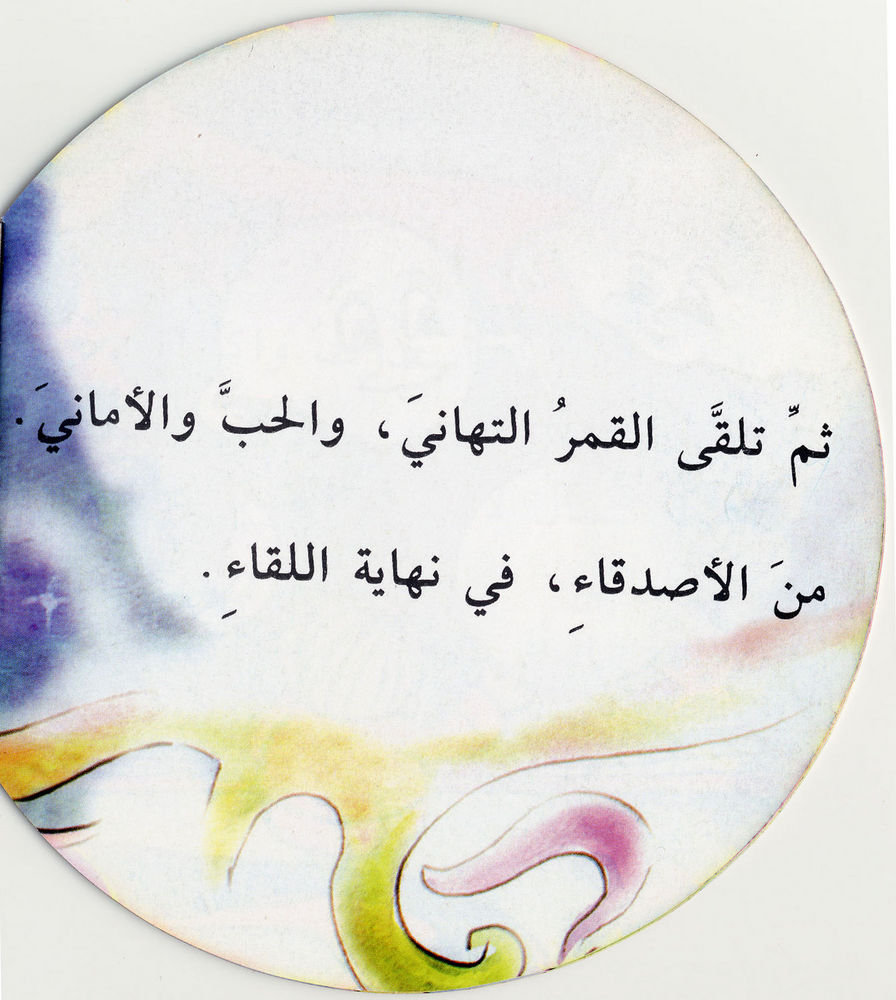 ثمِّ تلقَّى القمرُ التهانيَ، والحبَّ والأمانيَ.
منَ الأصدقاءِ، في نهاية اللقاءِ.